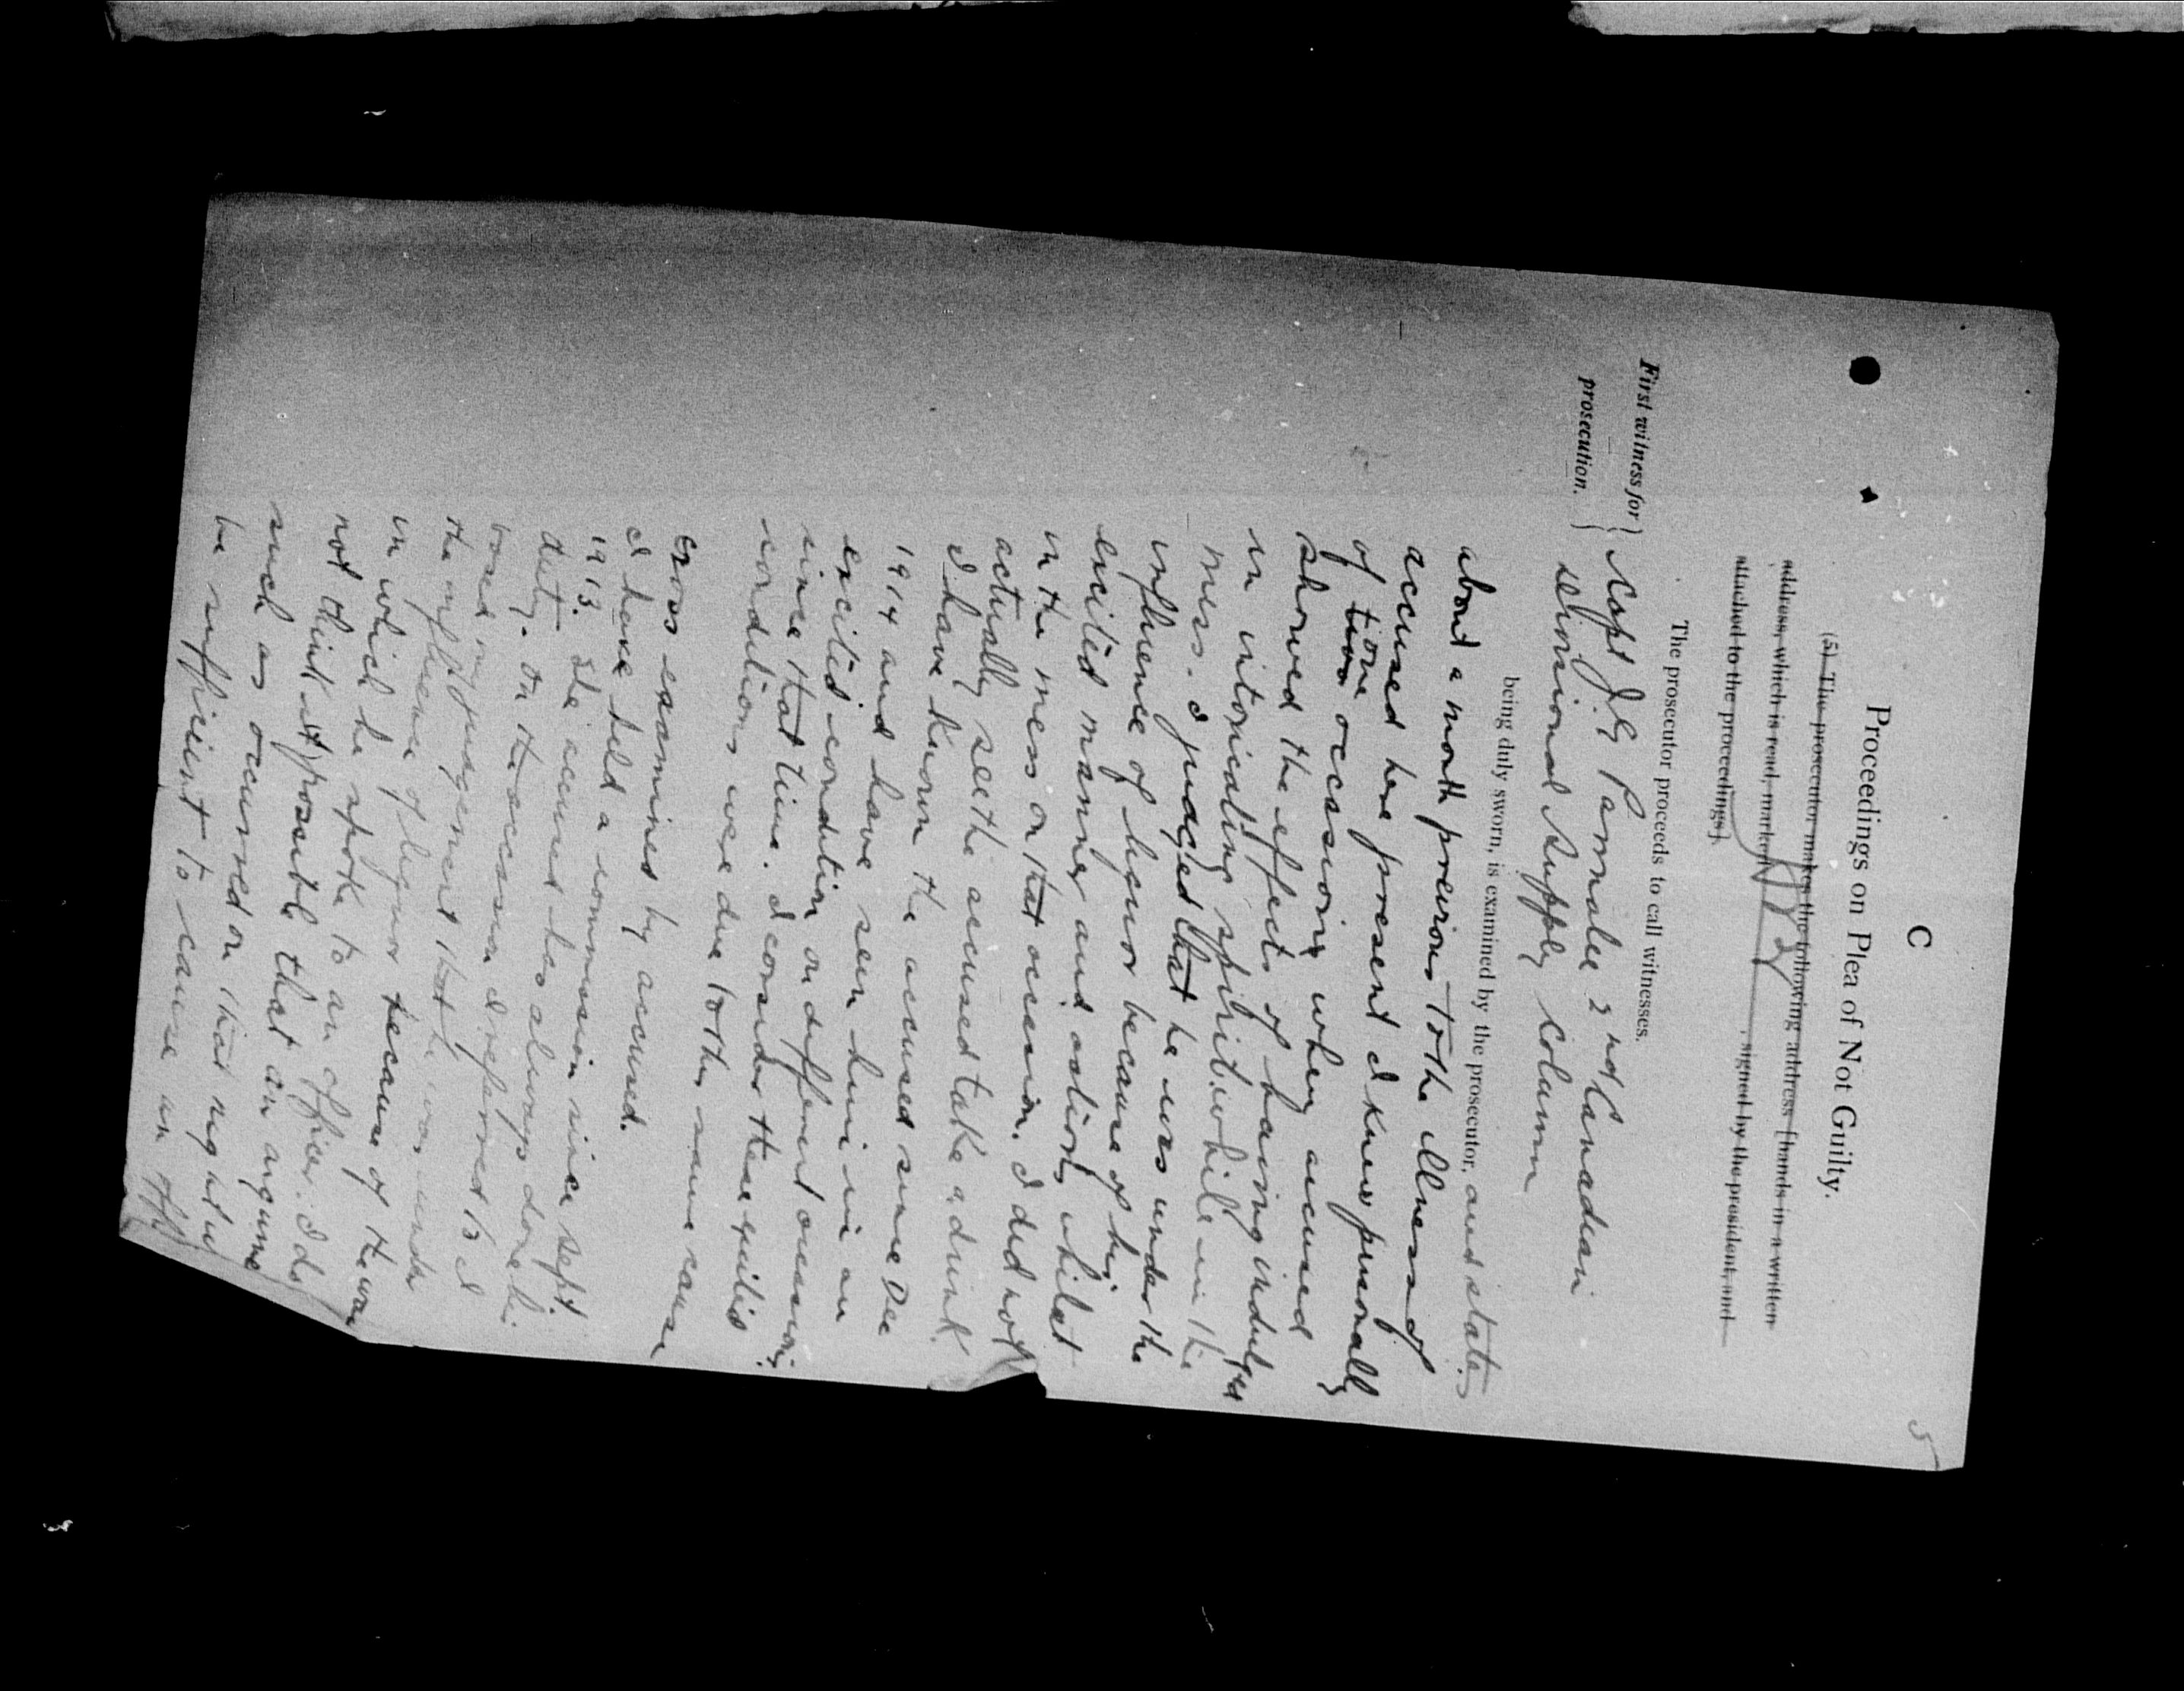 C
5
Proceedings on Plea of Not Guilty.
(5) The prosecutor makes the following address [hands in a written
address, which is read, marked , signed by the president, and
attached to the proceedings].
The prosecutor proceeds to call witnesses.
First witness for prosecution. } Capt J. G Parmalee 2nd Canadian
Divisional Supply Column
being duly sworn, is examined by the prosecutor, and states
about a month previous to the illness of
accused here present I knew personally
of one occasion when accused
showed the effects of having indulged
in intoxicating spirit while in the
mess. I judged that he was under the
influence of liquor because of his
excited manner and actions whilst
in the mess on that occasion. I did not
actually see the accused take a drink.
I have known the accused since Dec
1914 and have seen him in an
excited condition on different occasions
since that time. I consider these excited
conditions were due to the same cause
Cross examined by accused.
I have held a commission since Sept
1913. The accused has always done his
duty. On the occasion I referred to I
based my judgement that he was under
the influence of liquor because of the way
in which he spoke to an officer. I do
not think it possible that an argume
such as occurred on that night w
be sufficient to cause an off